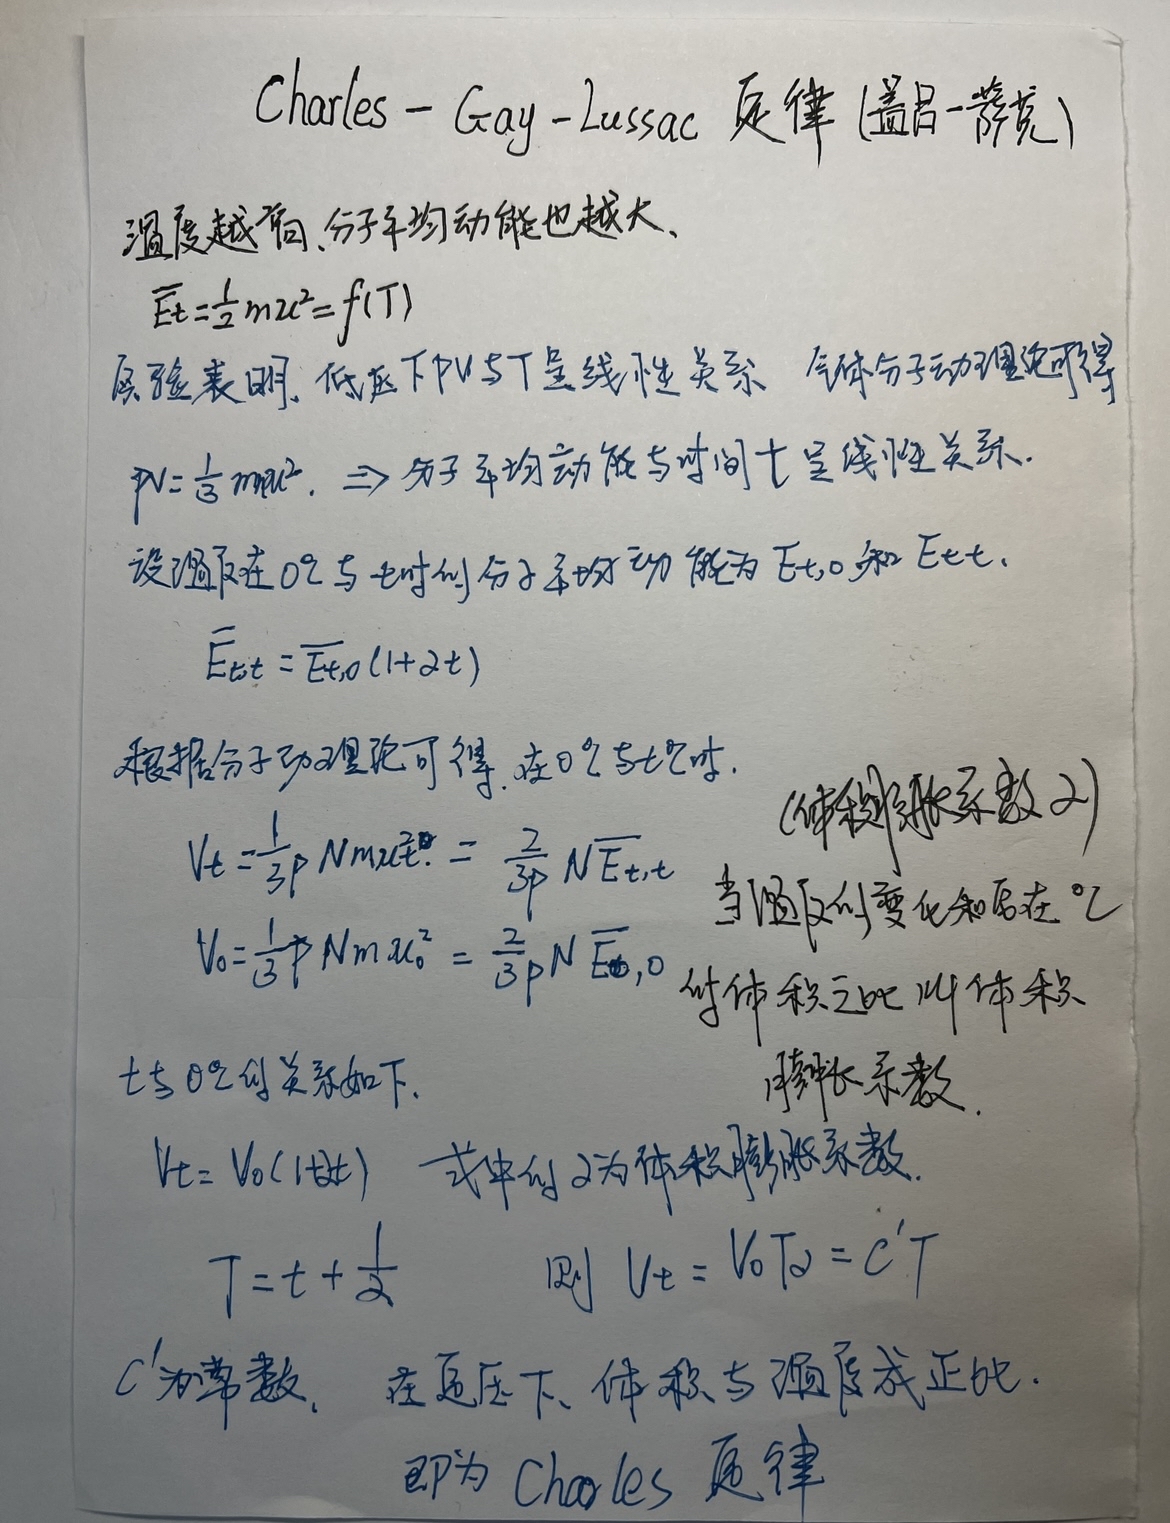 Charles - Gay-Lussac 定律 (盖吕-萨克)
温度越高、分子平均动能也越大、
Et=1/2 mu²= f(T)
实验表明、低压下PV与T呈线性关系 气体分子动理论可得
PV=1/3 mnu². ⇒ 分子平均动能与时间t呈线性关系.
设温度在0℃与t时的分子平均动能为 Et,0 和 Et,t.
Et,t = Et,0 (1+αt)
根据分子动理论可得、在0℃与t℃时.
Vt = 1/3p Nmut² = 2/3p N Et,t
V0 = 1/3p Nmu0² = 2/3p N Et,0
(体积膨胀系数α)
当温度的变化和后在0℃
时体积之比叫体积
膨胀系数.
t与0℃的关系如下.
Vt = V0(1+αt) 式中的α为体积膨胀系数.
T = t + 1/α 则 Vt = V0Tα = C'T
C'为常数、在定压下、体积与温度成正比.
即为 Charles 定律